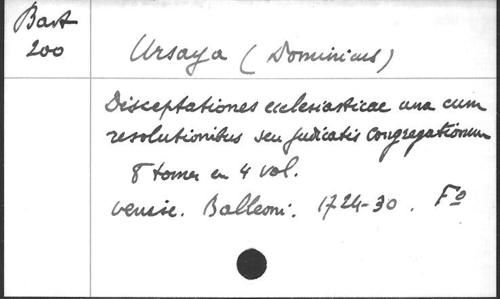 Bast
200
Ursaya ( Dominicus)
Disceptationes ecclesiasticae una cum
resolutionibus seu judicatis Congregationum
8 tomes en 4 vol.
Venise. Balleoni. 1724-30. Fº